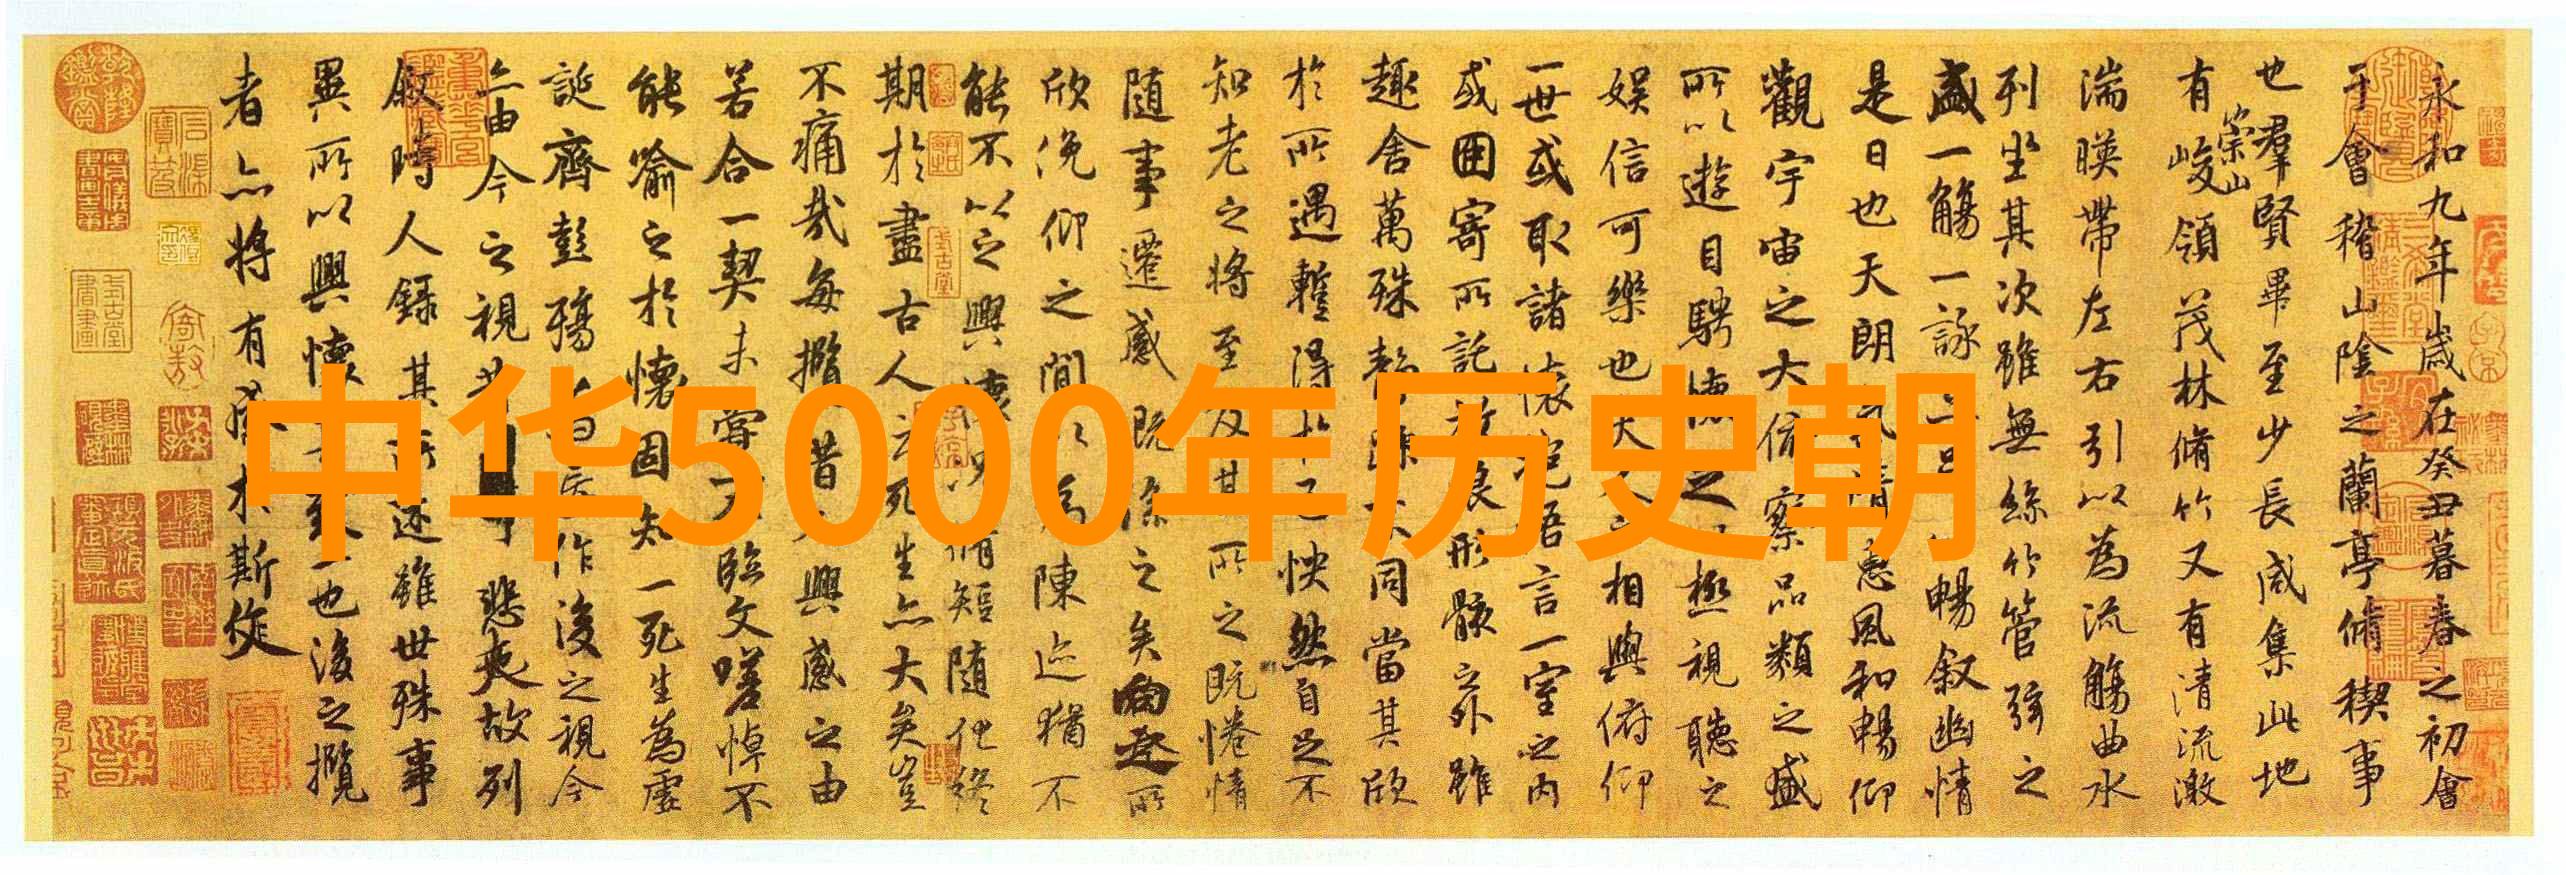 中华5000年历史朝
永和九年歲在癸丑暮春之初會
于會稽山陰之蘭亭脩稧事
也羣賢畢至少長咸集此地
有崇山峻領茂林脩竹又有清流激
湍暎帶左右引以為流觴曲水
列坐其次雖無絲竹管弦之
盛一觴一詠暢叙幽情
是日也天朗氣清惠風和暢仰
觀宇宙之大俯察品類之盛
所以遊目騁懷極視聽之
娛信可樂也夫人之相與俯仰
一世或取諸懷抱悟言一室之內
或因寄所託放浪形骸之外雖
趣舍萬殊靜躁不同當其欣
於所遇蹔得於己怏然自足不
知老之將至及其所之既惓情
隨事遷感慨係之矣向之所
欣俛仰之閒以為陳迹猶不
能不以之興懷況脩短隨化終
期於盡古人云死生亦大矣豈
不痛哉每攬昔人興感之由
若合一契未嘗不臨文嗟悼不
能喻之於懷固知一死生為虛
誕齊彭殤為妄作後之視今
亦由今之視昔悲夫故列
叙時人錄其所述雖世殊事
異所以興懷其致一也後之攬
者亦將有感於斯文